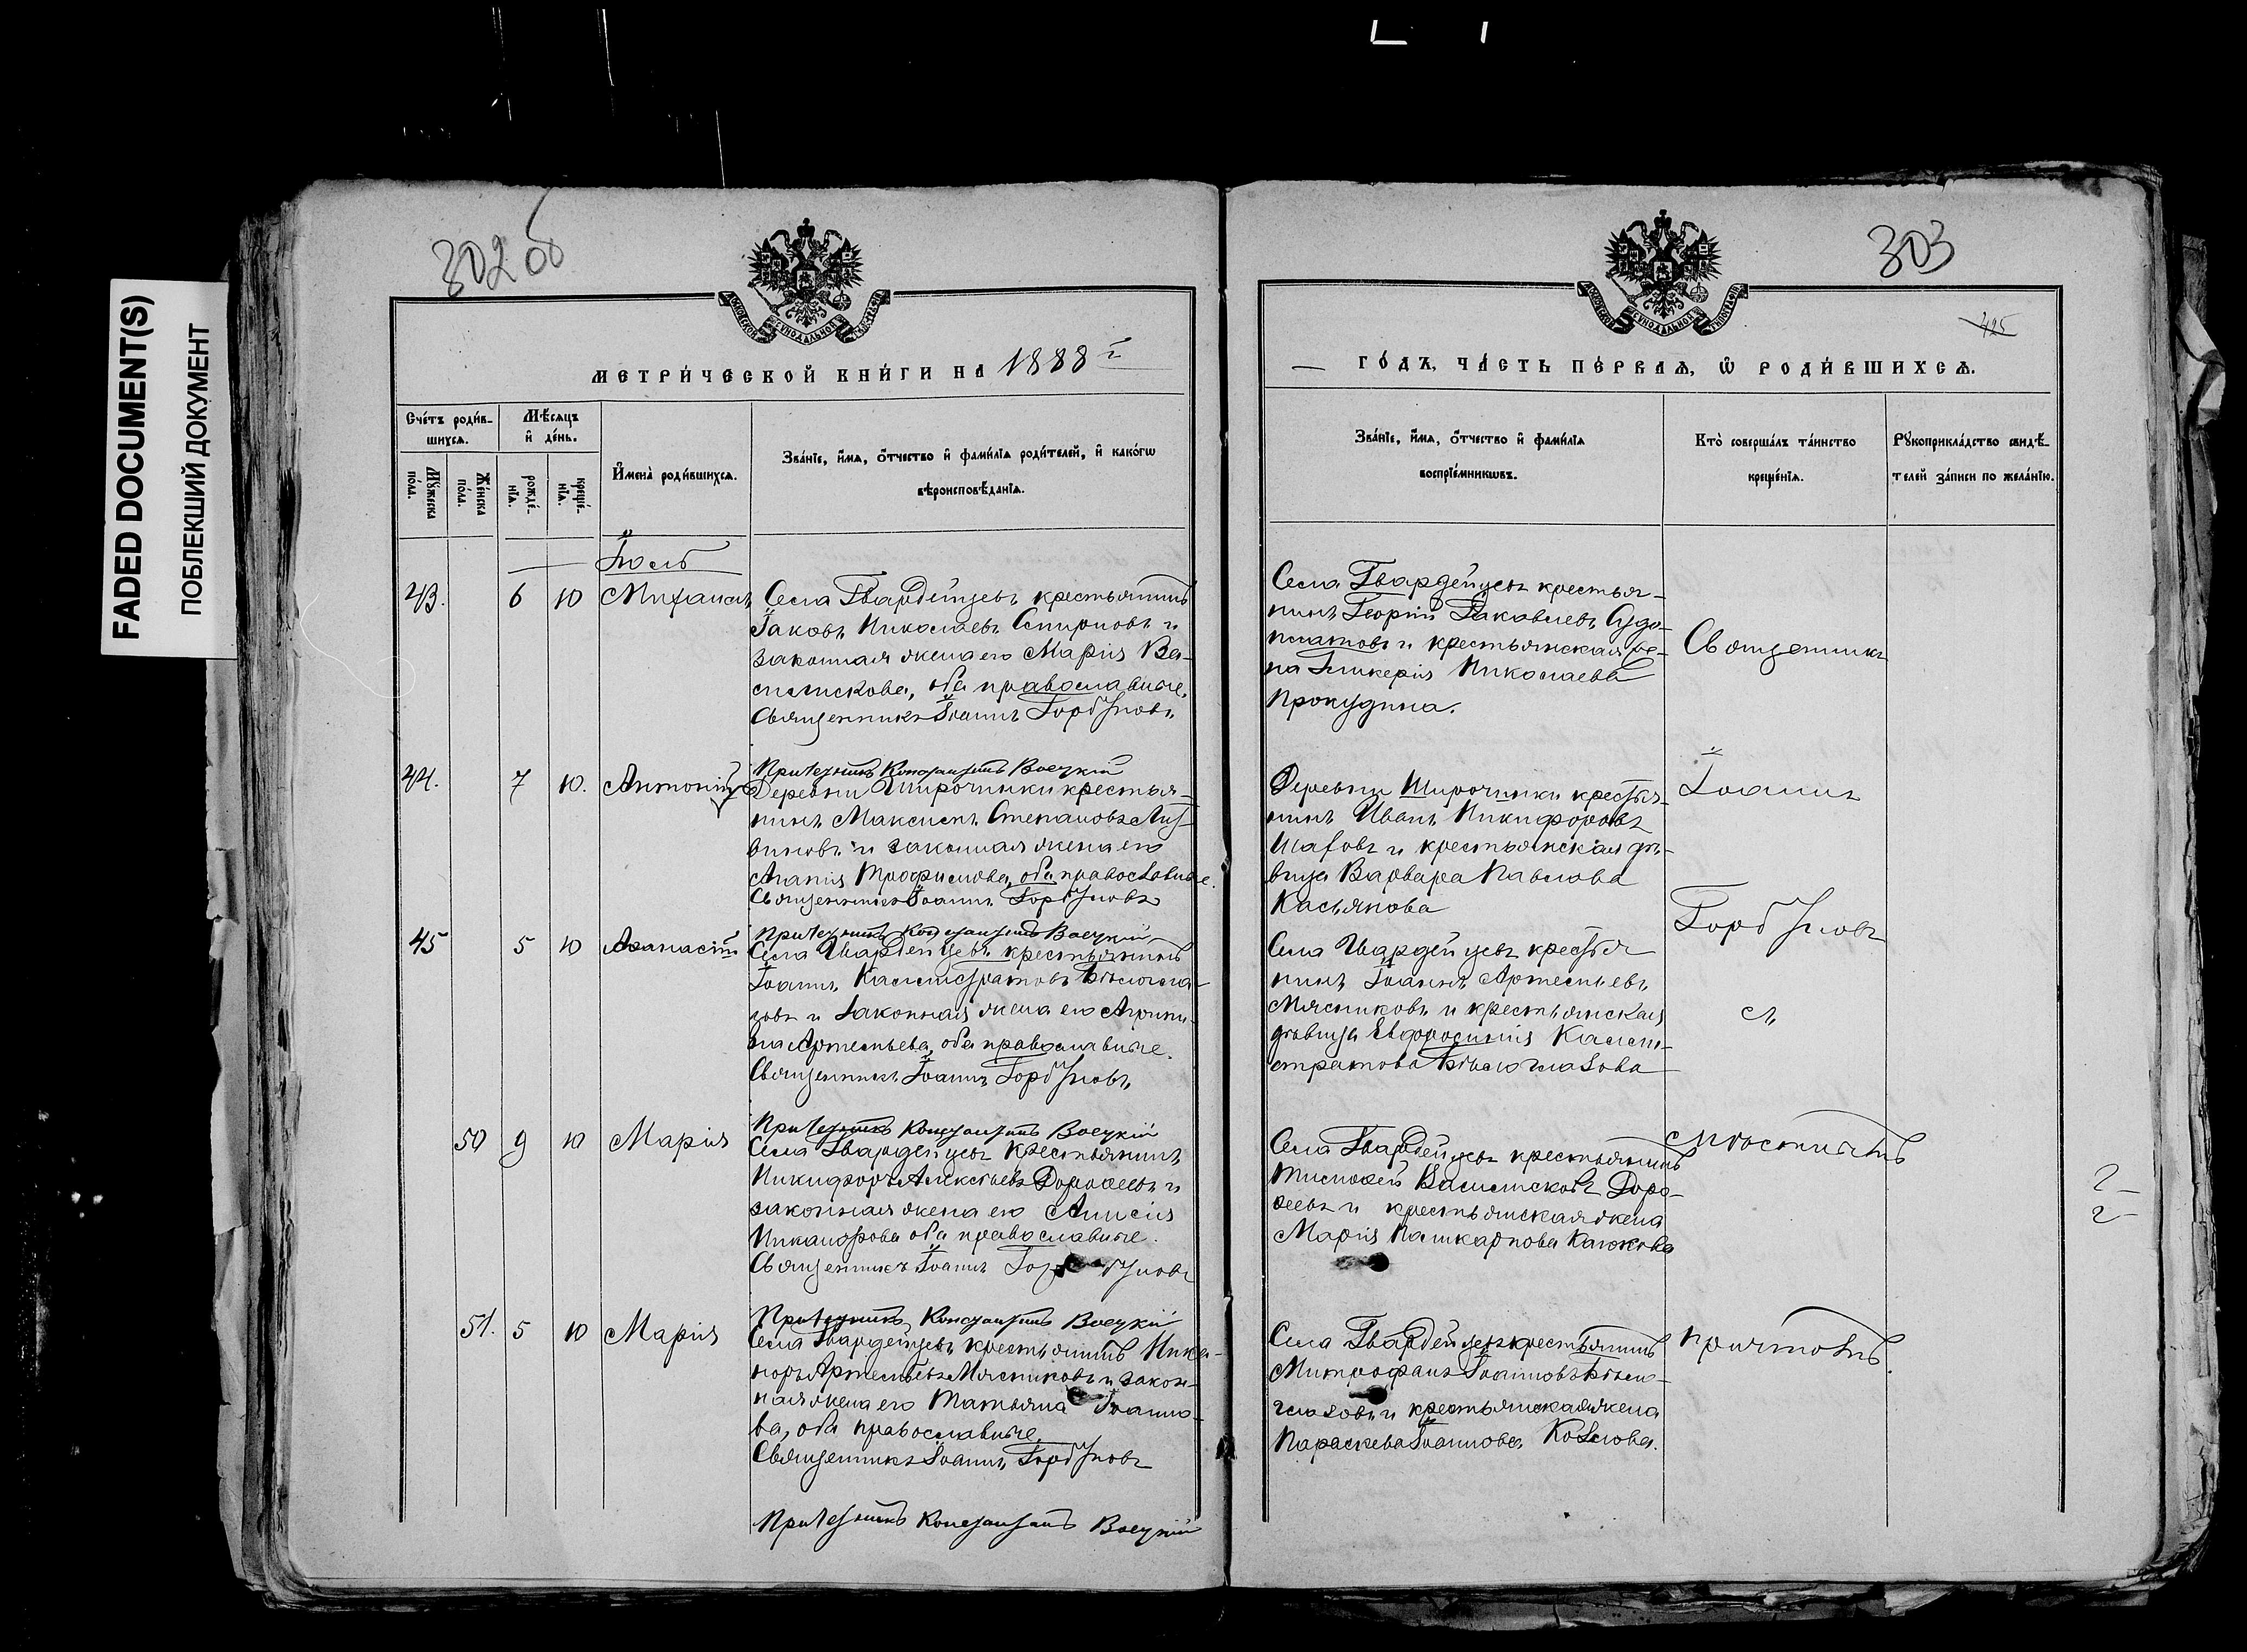 FADED DOCUMENT(S)
ПОБЛЕКШИЙ ДОКУМЕНТ
302 об
МЕТРИ́ЧЕСКОЙ КНИ́ГИ НА 1888 г
Сче́тъ роди́в-
шихся.
Мѣ́сяцъ
и҆ де́нь.
Му́жеска
по́ла.
Же́нска
по́ла.
рожде́-
нїя.
креще́-
нїя.
И҆мена̀ роди́вшихся.
Зва́нїе, и҆́мя, ѻ҆́тчество и҆ фами́лїя роди́телей, и҆ како́гѡ
вѣроисповѣ́данїя.
Іюль
43. 6 10 Михаилъ
Села Гвардейцевъ крестьянинъ
Іаковъ Николаевъ Смирновъ и
законная жена его Марія Ва-
силискова, оба православные.
Священникъ Іоаннъ Горбуновъ
Причетникъ Константинъ Воецкій
44. 7 10. Антоній
Деревни Широчинки крестья-
нинъ Максимъ Степановъ
и законная жена его
Трофимова, оба православные.
Священникъ Іоаннъ Горбуновъ
Причетникъ Константинъ Воецкій
45 5 10 Аѳанасій
Села Гвардейцевъ крестьянинъ
Іоаннъ Каллистратовъ Бѣлогла-
зовъ и законная жена его Агрипи-
на Артемьева, оба православные.
Священникъ Іоаннъ Горбуновъ
Причетникъ Константинъ Воецкій
50 9 10 Марія
Села Гвардейцевъ крестьянинъ
Никифоръ Алексѣевъ Дороѳеевъ и
законная жена его Анисія
Никанорова оба православные.
Священникъ Іоаннъ Горбуновъ
Причетникъ Константинъ Воецкій
51. 5 10 Марія
Села Гвардейцевъ крестьянинъ Ника-
норъ Артемьевъ Мясниковъ и закон-
ная жена его Татьяна Іоанно-
ва, оба православные.
Священникъ Іоаннъ Горбуновъ
Причетникъ Константинъ Воецкій
303
425
ГО́ДЪ, ЧА́СТЬ ПЕ́РВАЯ, Ѡ҆ РОДИ́ВШИХСЯ.
Зва́нїе, и҆́мя, ѻ҆́тчество и҆ фами́лїя
воспрїе́мникѡвъ.
Кто̀ соверша́лъ та́инство
креще́нїя.
Рꙋкоприкла́дство свидѣ́-
телей за́писи по жела́нїю.
Села Гвардейцевъ крестья-
нинъ Георгій Іаковлевъ Судо-
платовъ и крестьянская же-
на Гликерія Николаева
Прокудина.
Деревни Широчинки крестья-
нинъ Иванъ Никифоровъ
и крестьянская дѣ-
вица Варвара Павлова
Касьянова
Села Гвардейцевъ крестья
нинъ Іоаннъ Артемьевъ
Мясниковъ и крестьянская
дѣвица Евфросинія Калли-
стратова Бѣлоглазова
Села Гвардейцевъ крестьянинъ
Тимоѳей Василисковъ Доро-
ѳеевъ и крестьянская жена
Марія
Села Гвардейцевъ крестьянинъ
Митрофанъ Іоанновъ Бѣло-
глазовъ и крестьянская жена
Параскева Іоаннова Козлова.
Священникъ
Іоаннъ
Горбуновъ
съ
мѣстнымъ
причтомъ.